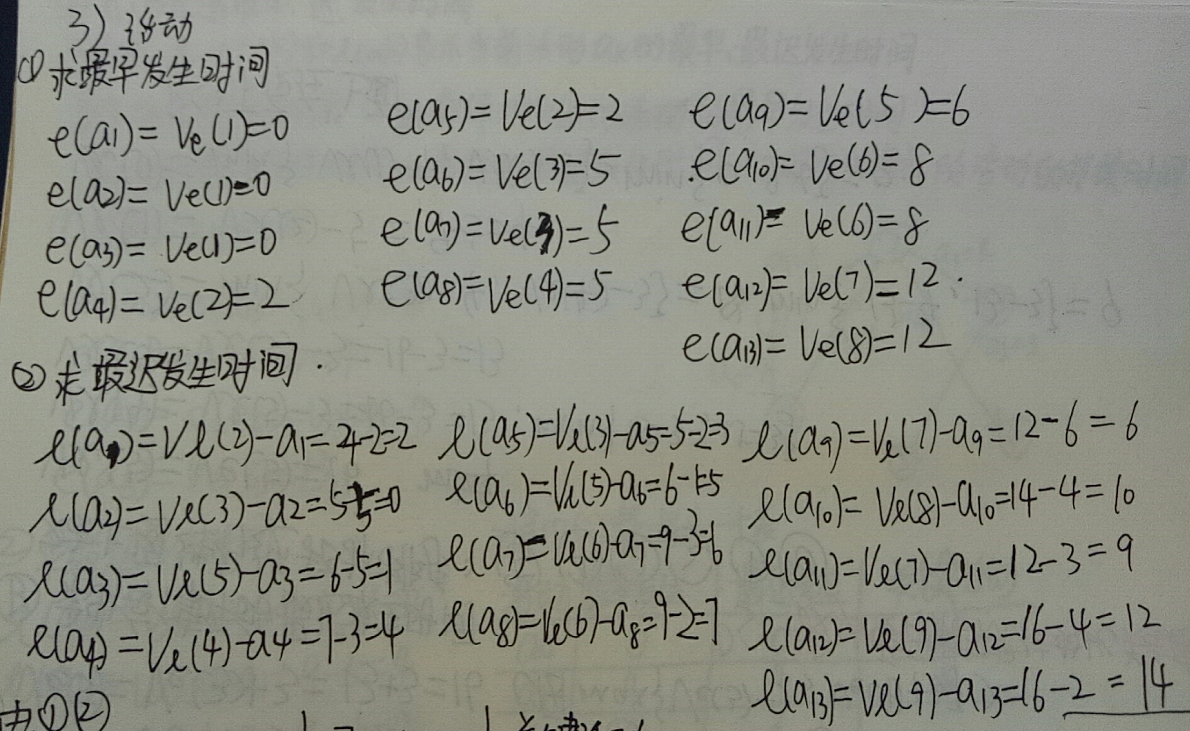 3) 活动
① 求最早发生时间
e(a1)= Ve(1)=0
e(a2)= Ve(1)=0
e(a3)= Ve(1)=0
e(a4)= Ve(2)=2
e(a5)= Ve(2)=2
e(a6)= Ve(3)=5
e(a7)= Ve(3)=5
e(a8)= Ve(4)=5
e(a9)= Ve(5)=6
e(a10)= Ve(6)=8
e(a11)= Ve(6)=8
e(a12)= Ve(7)=12.
e(a13)= Ve(8)=12
② 求最迟发生时间.
l(a1)=Vl(2)-a1=4-2=2
l(a2)=Vl(3)-a2=5-5=0
l(a3)=Vl(5)-a3=6-5=1
l(a4)=Vl(4)-a4=7-3=4
l(a5)=Vl(3)-a5=5-2=3
l(a6)=Vl(5)-a6=6-1=5
l(a7)=Vl(6)-a7=9-3=6
l(a8)=Vl(6)-a8=9-2=7
l(a9)=Vl(7)-a9=12-6=6
l(a10)=Vl(8)-a10=14-4=10
l(a11)=Vl(7)-a11=12-3=9
l(a12)=Vl(9)-a12=16-4=12
l(a13)=Vl(9)-a13=16-2=14
由①②